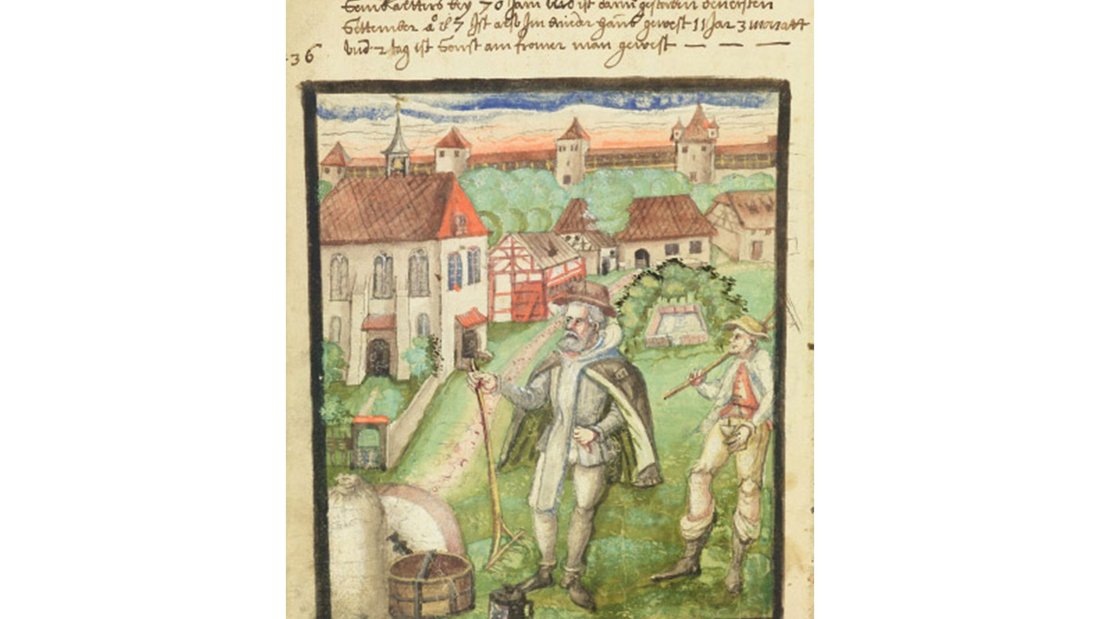 bey 70 Jarn und ist dann gestorben den ersten
September aº 87 Ist also Im bruder haus gewest 11 Jar 3 monatt
Und 2 tag ist Sonst ain fromer man gewest — — —
36